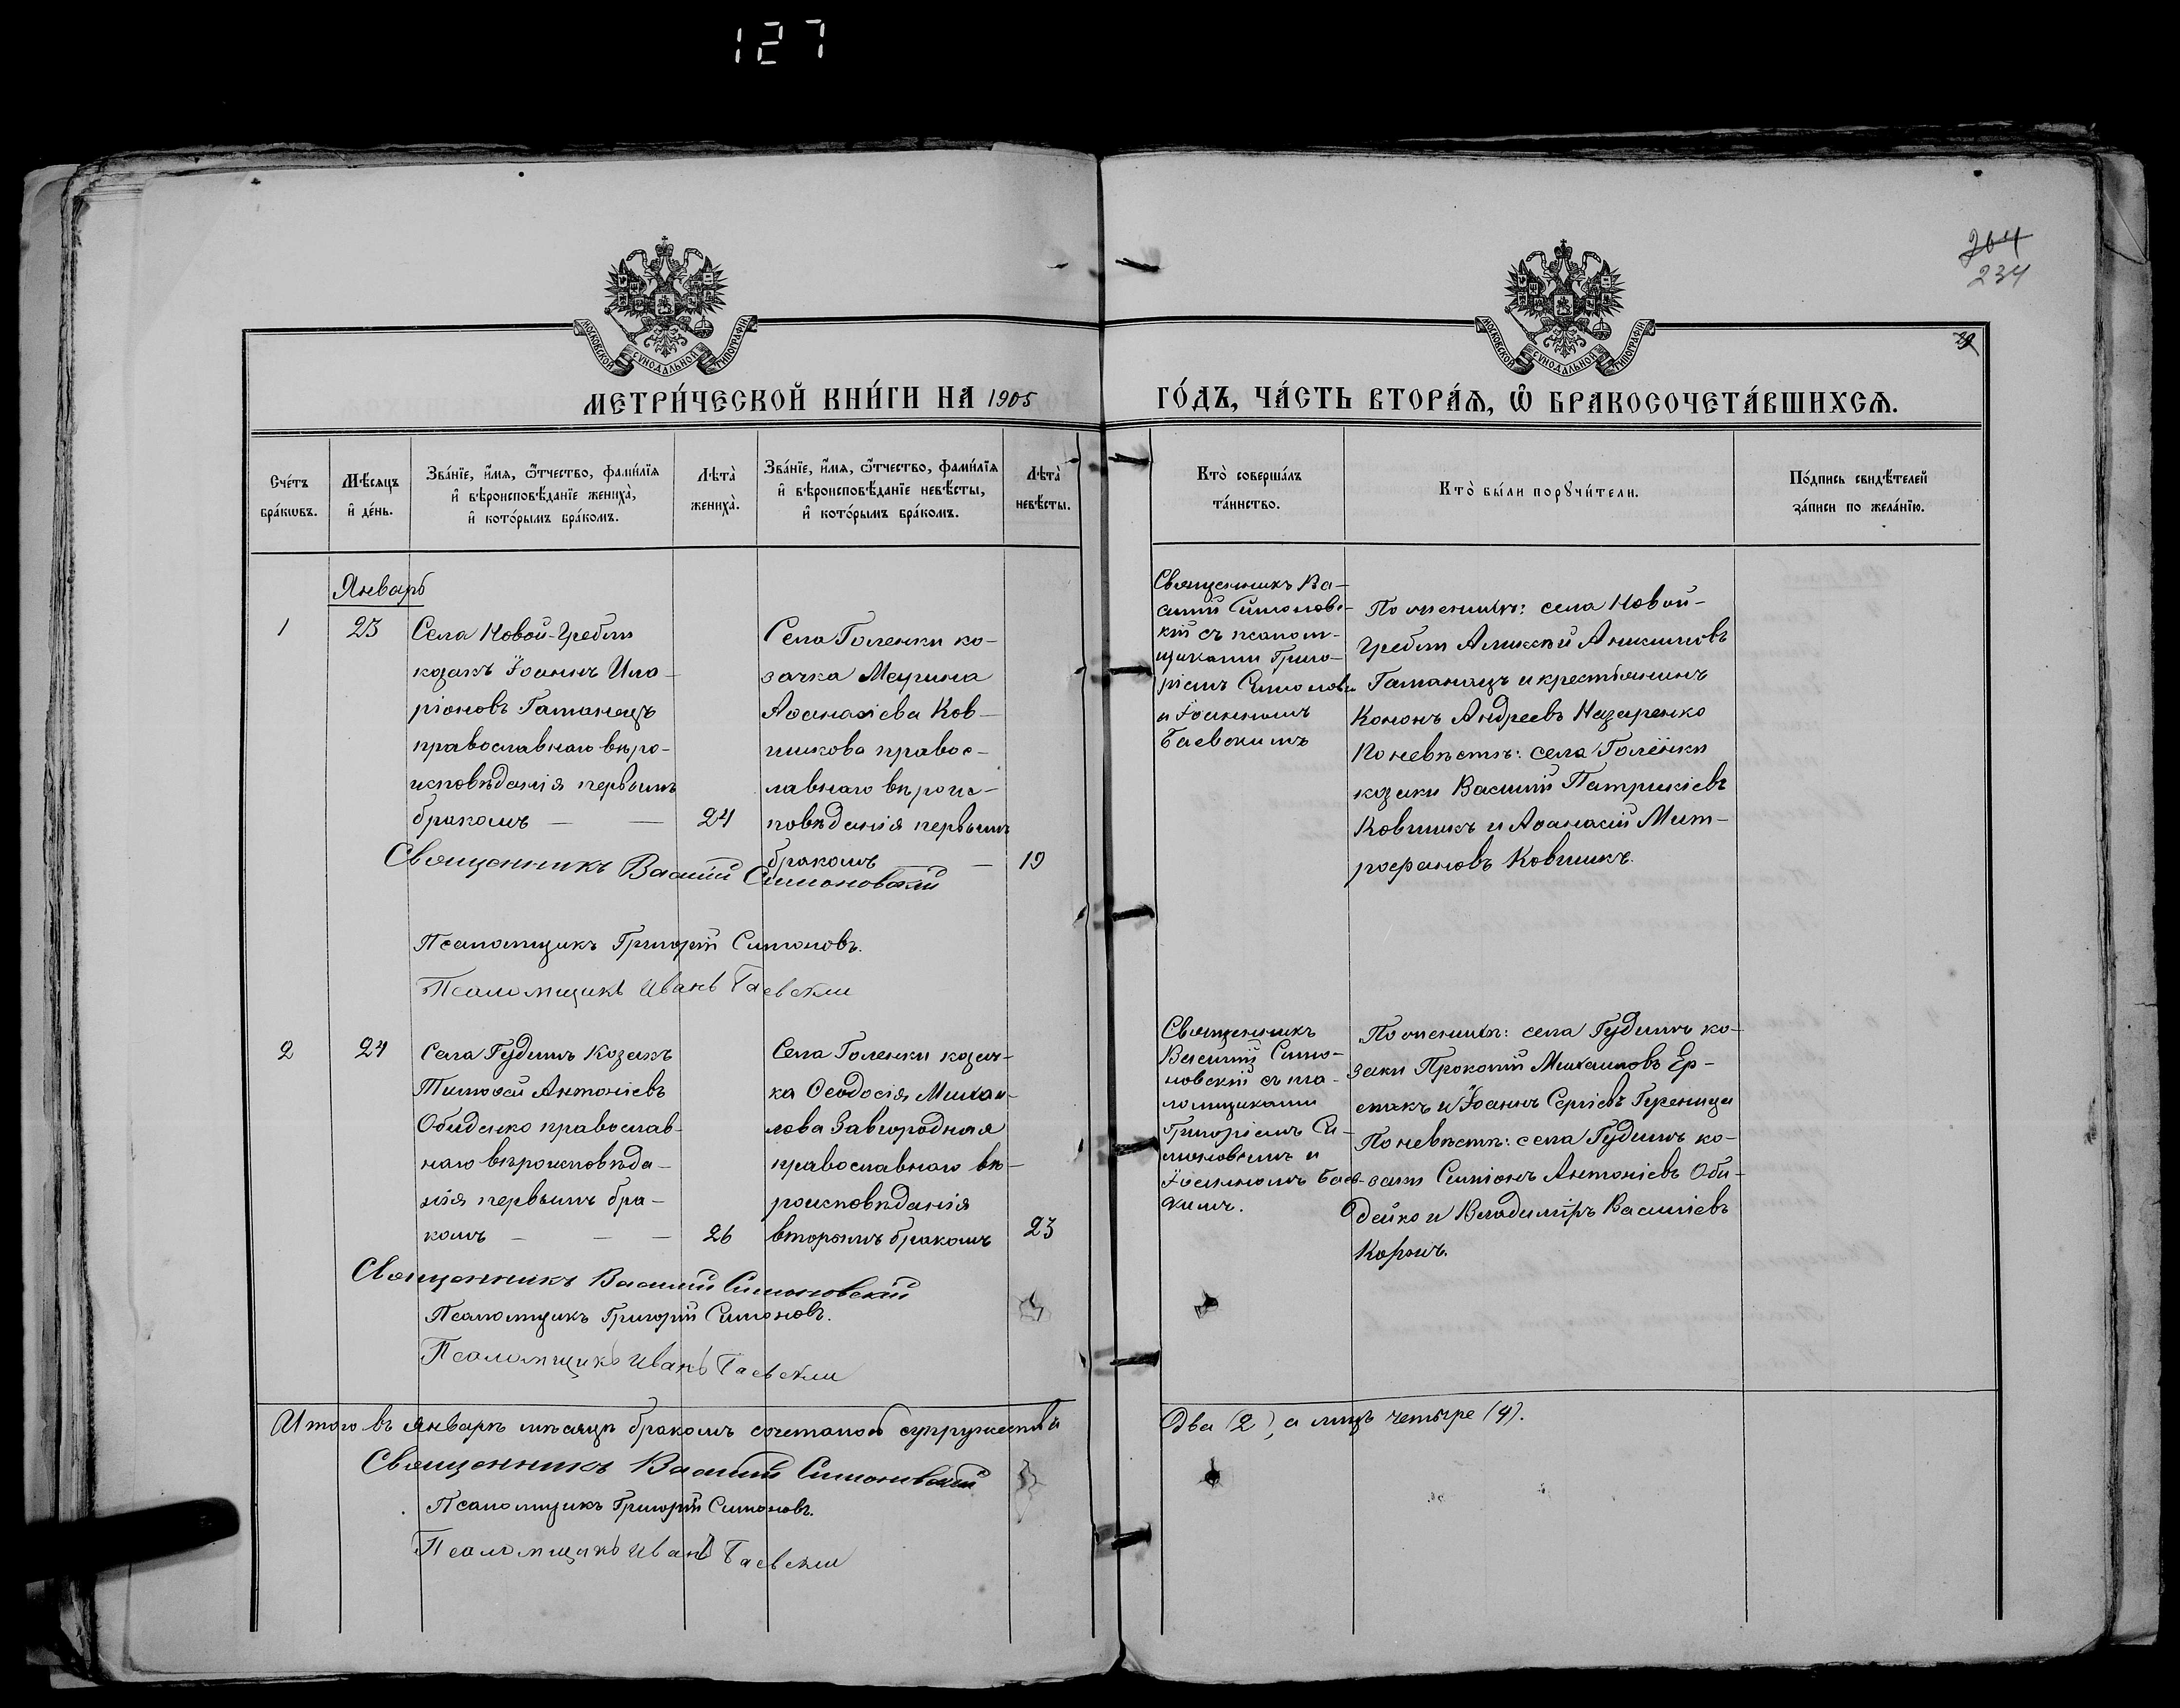 127
264
234
29
МОСКОВСКОЙ СѴНОДАЛЬНОЙ ТИПОГРАФІИ
МОСКОВСКОЙ СѴНОДАЛЬНОЙ ТИПОГРАФІИ
МЕТРИ́ЧЕСКОЙ КНИ́ГИ НА 1905
ГО́ДЪ, ЧА́СТЬ ВТОРА́Ѧ, Ѡ БРАКОСОЧЕТА́ВШИХСѦ.
Сче́тъ
бра́кѡвъ.
Мѣ́сѧцъ
и҆ де́нь.
Зва́нїе, и҆́мѧ, ѻ҆́тчество, фами́лїѧ
и҆ вѣроисповѣ́данїе жениха̀,
и҆ кото́рымъ бра́комъ.
Лѣта̀
жениха̀.
Зва́нїе, и҆́мѧ, ѻ҆́тчество, фами́лїѧ
и҆ вѣроисповѣ́данїе невѣ́сты,
и҆ кото́рымъ бра́комъ.
Лѣта̀
невѣ́сты.
Кто̀ соверша́лъ
та́инство.
Кто̀ бы́ли порꙋчи́тели.
По́дпись свидѣ́телей
за́писи по жела́нїю.
Январь
1
23
Села Новой-Гребли
козакъ Іоаннъ Ила-
ріоновъ Гатанецъ
православнаго вѣро-
исповѣданія первымъ
бракомъ — —
24
Села Голенки ко-
зачка Маврина
Аѳанасіева Ков-
шикова правос-
лавнаго вѣроис-
повѣданія первымъ
бракомъ —
19
Священникъ Ва-
силій Симоновс-
кій съ псалом-
щиками Григо-
ріемъ Симоновымъ
и Іоанномъ
Баевскимъ
По женихѣ: села Новой-
Гребли Алексѣй Аникіевъ
Гатанецъ и крестьянинъ
Кононъ Андреевъ Назаренко
По невѣстѣ: села Голенки
козаки Василій Патрикіевъ
Ковшикъ и Аѳанасій Мит-
рофановъ Ковшикъ.
Священникъ Василій Симоновскій
Псаломщикъ Григорій Симоновъ.
Псаломщикъ Иванъ Баевскій
2
24
Села Гудимъ козакъ
Тимоѳей Антоніевъ
Обидейко православ-
наго вѣроисповѣда-
нія первымъ бра-
комъ — — —
26
Села Голенки козач-
ка Ѳеодосія Михаи-
лова Завгородная
православнаго вѣ-
роисповѣданія
вторымъ бракомъ
23
Священникъ
Василій Симо-
новскій съ пса-
ломщиками
Григоріемъ Си-
моновымъ и
Іоанномъ Баевс-
кимъ.
По женихѣ: села Гудимъ ко-
заки Прокопій Михаиловъ Ер-
макъ и Іоаннъ Сергіевъ
По невѣстѣ: села Гудимъ ко-
заки Симіонъ Антоніевъ Оби-
дейко и Владиміръ Василіевъ
Священникъ Василій Симоновскій
Псаломщикъ Григорій Симоновъ.
Псаломщикъ Иванъ Баевскій
Итого въ январѣ мѣсяцѣ бракомъ сочеталось супружествъ
Два (2), а лицъ четыре (4).
Священникъ Василій Симоновскій
Псаломщикъ Григорій Симоновъ.
Псаломщикъ Иванъ Баевскій